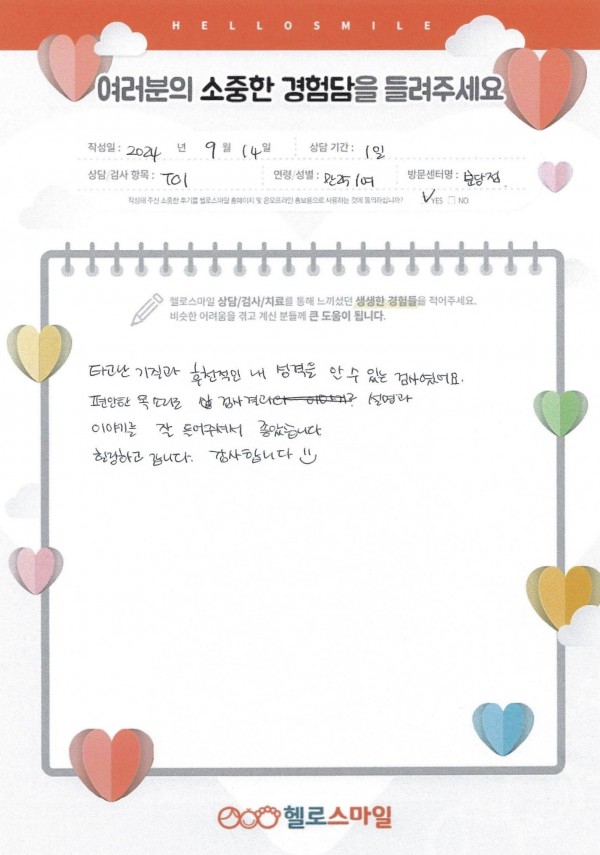 HELLOSMILE
여러분의 소중한 경험담을 들려주세요
작성일 : 2024 년 9 월 14 일 상담 기간 : 1일
상담/검사 항목 : TCI 연령/성별 : 만 /여 방문센터명 : 분당점
작성해 주신 소중한 후기를 헬로스마일 홈페이지 및 온오프라인 홍보용으로 사용하는 것에 동의하십니까? YES NO
헬로스마일 상담/검사/치료를 통해 느끼셨던 생생한 경험들을 적어주세요.
비슷한 어려움을 겪고 계신 분들께 큰 도움이 됩니다.
타고난 기질과 후천적인 내 성격을 알 수 있는 검사였어요.
편안한 목소리로 검사결과 설명과
이야기를 잘 들어주셔서 좋았습니다
힐링하고 갑니다. 감사합니다
헬로스마일